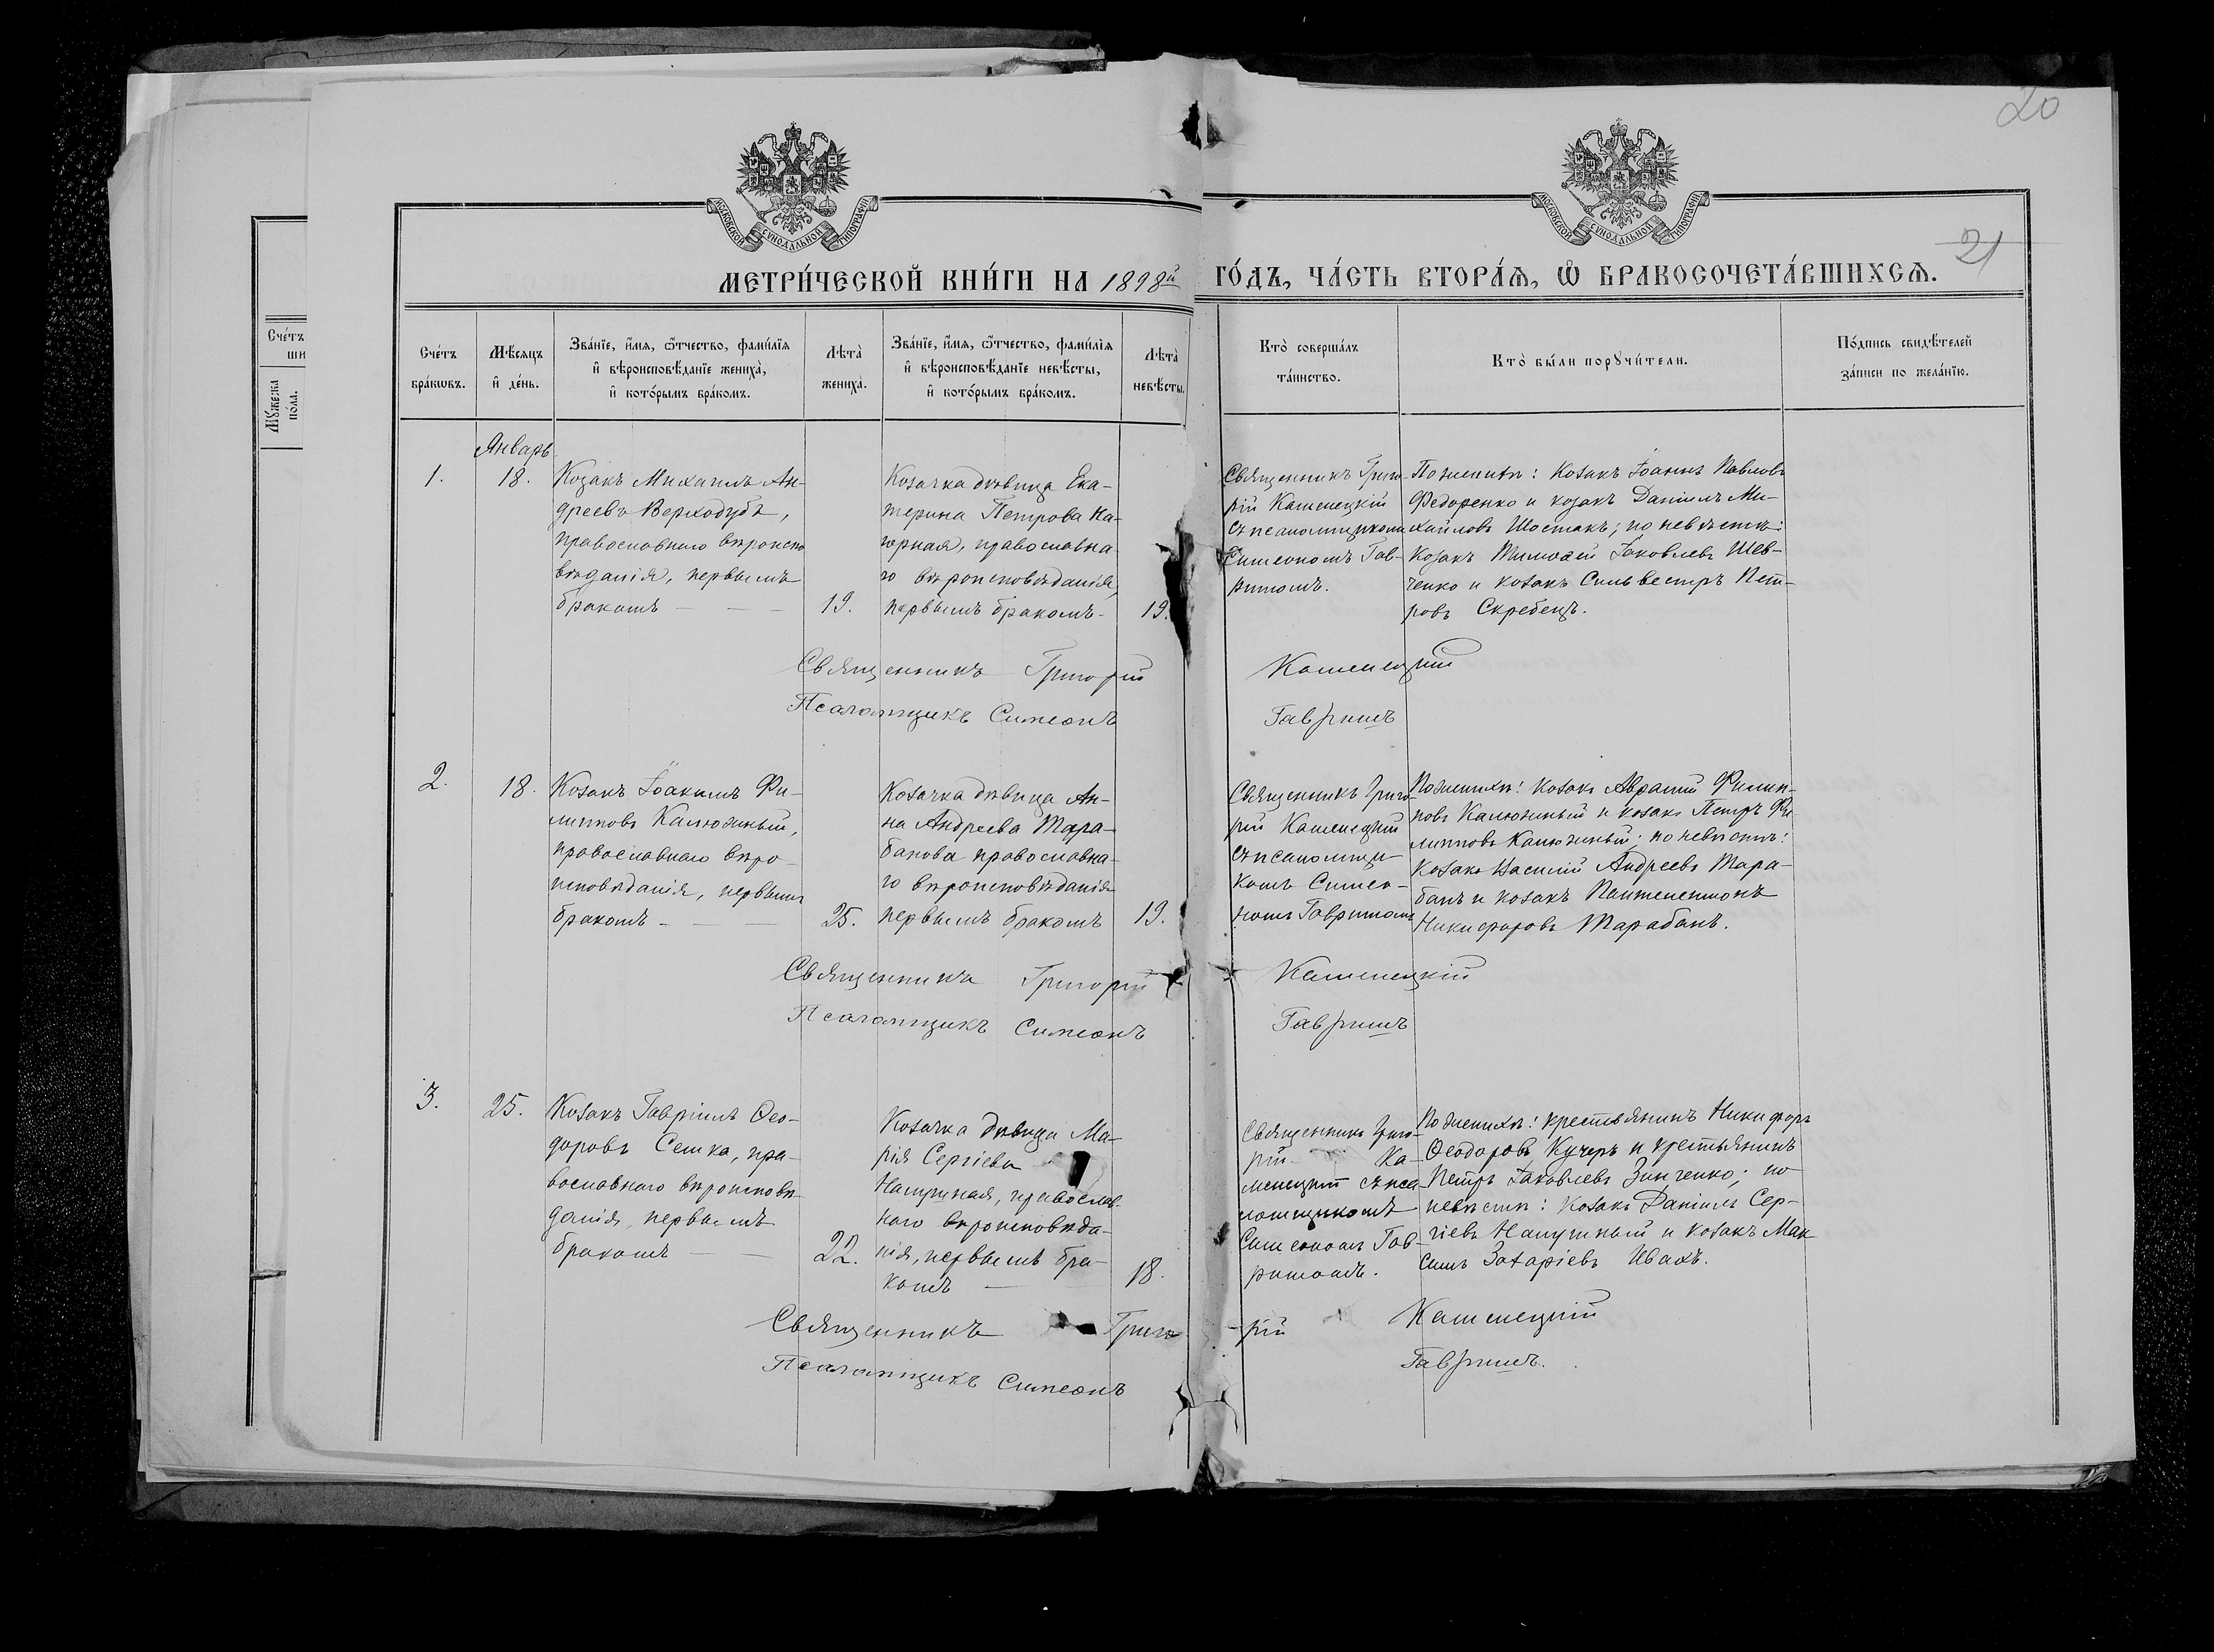 20
21
МОСКОВСКОЙ СѴНОДАЛЬНОЙ ТИПОГРАФІИ
МОСКОВСКОЙ СѴНОДАЛЬНОЙ ТИПОГРАФІИ
МЕТРИ́ЧЕСКОЙ КНИ́ГИ НА 1898й ГО́ДЪ, ЧА́СТЬ ВТОРА́Ѧ, Ѽ БРАКОСОЧЕТА́ВШИХСѦ.
Сче́тъ
ши
Мꙋ́жеска
по́ла.
Сче́тъ
бра́кѡвъ.
Мѣ́сѧцъ
и҆ де́нь.
Зва́нїе, и҆́мѧ, ѻ҆́тчество, фами́лїѧ
и҆ вѣроисповѣ́данїе жениха̀,
и҆ кото́рымъ бра́комъ.
Лѣ́та̀
жениха̀.
Зва́нїе, и҆́мѧ, ѻ҆́тчество, фами́лїѧ
и҆ вѣроисповѣ́данїе невѣ́сты,
и҆ кото́рымъ бра́комъ.
Лѣ́та̀
невѣ́сты.
Кто̀ соверша́лъ
та́инство.
Кто̀ бы́ли порꙋчи́тели.
По́дпись свидѣ́телей
за́писи по жела́нїю.
Январь
1.
18.
Козакъ Михаилъ Ан-
дреевъ Верходубъ,
православнаго вѣроиспо
вѣданія, первымъ
бракомъ — — —
19.
Козачка дѣвица Ека-
терина Петрова Ка-
торная, православна
го вѣроисповѣданія,
первымъ бракомъ-
19.
Священникъ Григо-
рій Каменецкій
съ псаломщикомъ
Симеономъ Гав-
ришомъ.
По женихѣ: козакъ Іоаннъ Павловъ
Федоренко и козакъ Даніилъ Ми-
хайловъ Шостакъ; по невѣстѣ:
козакъ Тимоѳей Іаковлевъ Шев-
ченко и козакъ Сильвестръ Пет-
ровъ Скребецъ.
Священникъ Григорій Каменецкій
Псаломщикъ Симеонъ Гавришъ
2.
18.
Козакъ Іоакимъ Фи-
липповъ Калюжный,
православнаго вѣро-
исповѣданія, первымъ
бракомъ - — —
25.
Козачка дѣвица Ан-
на Андреева Тара-
банова православна-
го вѣроисповѣданія
первымъ бракомъ
19.
Священникъ Григо-
рій Каменецкій
съ псаломщи-
комъ Симео-
номъ Гавришомъ
По женихѣ: козакъ Аврамій Филип-
повъ Калюжный и козакъ Петръ Фи
липповъ Калюжный; по невѣстѣ:
козакъ Василій Андреевъ Тара-
банъ и козакъ Пантелеимонъ
Никифоровъ Тарабанъ.
Священникъ Григорій Каменецкій
Псаломщикъ Симеонъ Гавришъ
3.
25.
Козакъ Гавріилъ Ѳео-
доровъ Семка, пра-
вославнаго вѣроисповѣ-
данія, первымъ
бракомъ — —
22.
Козачка дѣвица Ма-
рія Сергіева
православ-
наго вѣроисповѣда-
нія, первымъ бра-
комъ —
18.
Священникъ Григо-
рій Ка-
менецкій съ пса
ломщикомъ
Симеономъ Гав-
ришомъ.
По женихѣ: крестьянинъ Никифоръ
Ѳеодоровъ Кучеръ и крестьянинъ
Петръ Іаковлевъ Зинченко; по
невѣстѣ: козакъ Даніилъ Сер-
гіевъ и козакъ Мак
симъ Захаріевъ Ивахъ.
Священникъ Григорій Каменецкій
Псаломщикъ Симеонъ Гавришъ.